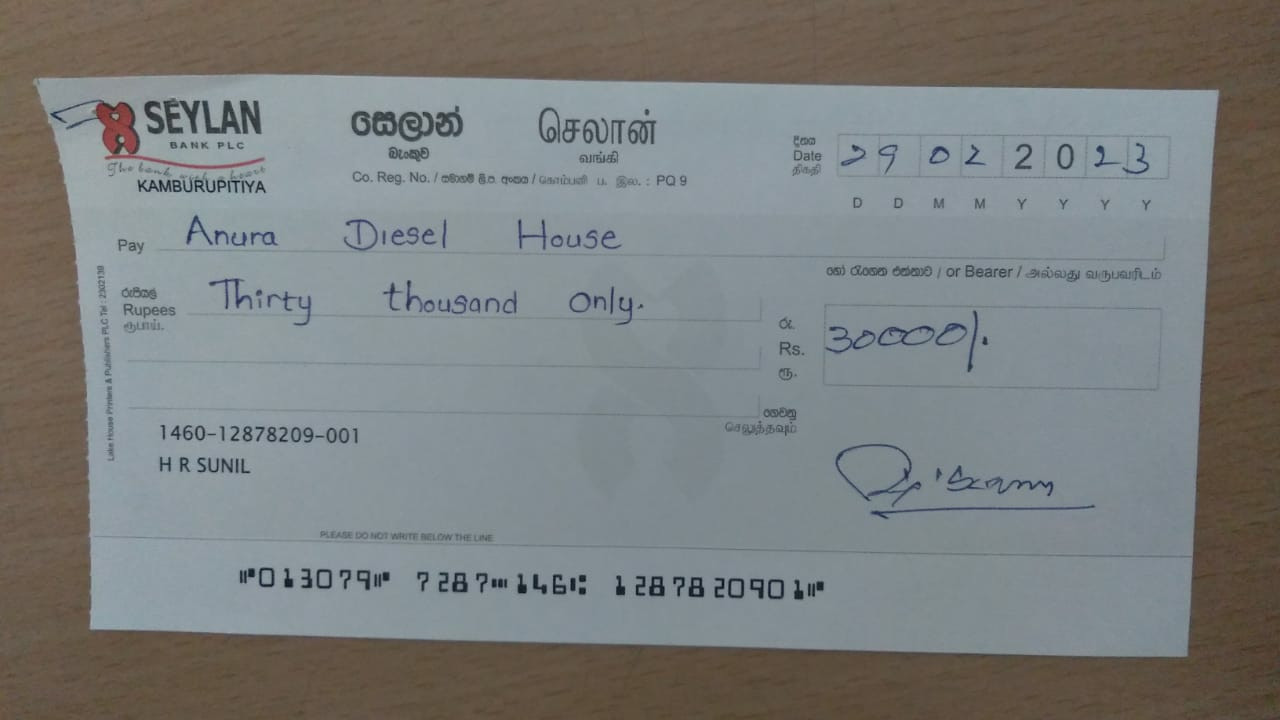 SEYLAN
BANK PLC
The bank with a heart
KAMBURUPITIYA
සෙලාන්
බැංකුව
செலான்
வங்கி
Co. Reg. No. / සමාගම් ලි.ප. අංකය / கொம்பனி ப. இல. : PQ 9
දිනය
Date
திகதி
29 02 2023
D D M M Y Y Y Y
Pay Anura Diesel House
හෝ රැගෙන එන්නාට / or Bearer / அல்லது வருபவரிடம்
රුපියල්
Rupees
ரூபாய்.
Thirty thousand only.
රු.
Rs.
ரூ.
30000/.
ගෙවනු
செலுத்தவும்
1460-12878209-001
H R SUNIL
Lake House Printers & Publishers PLC Tel : 2302139
PLEASE DO NOT WRITE BELOW THE LINE
⑈013079⑈ 7287⑉146⑆ 1287820901⑈